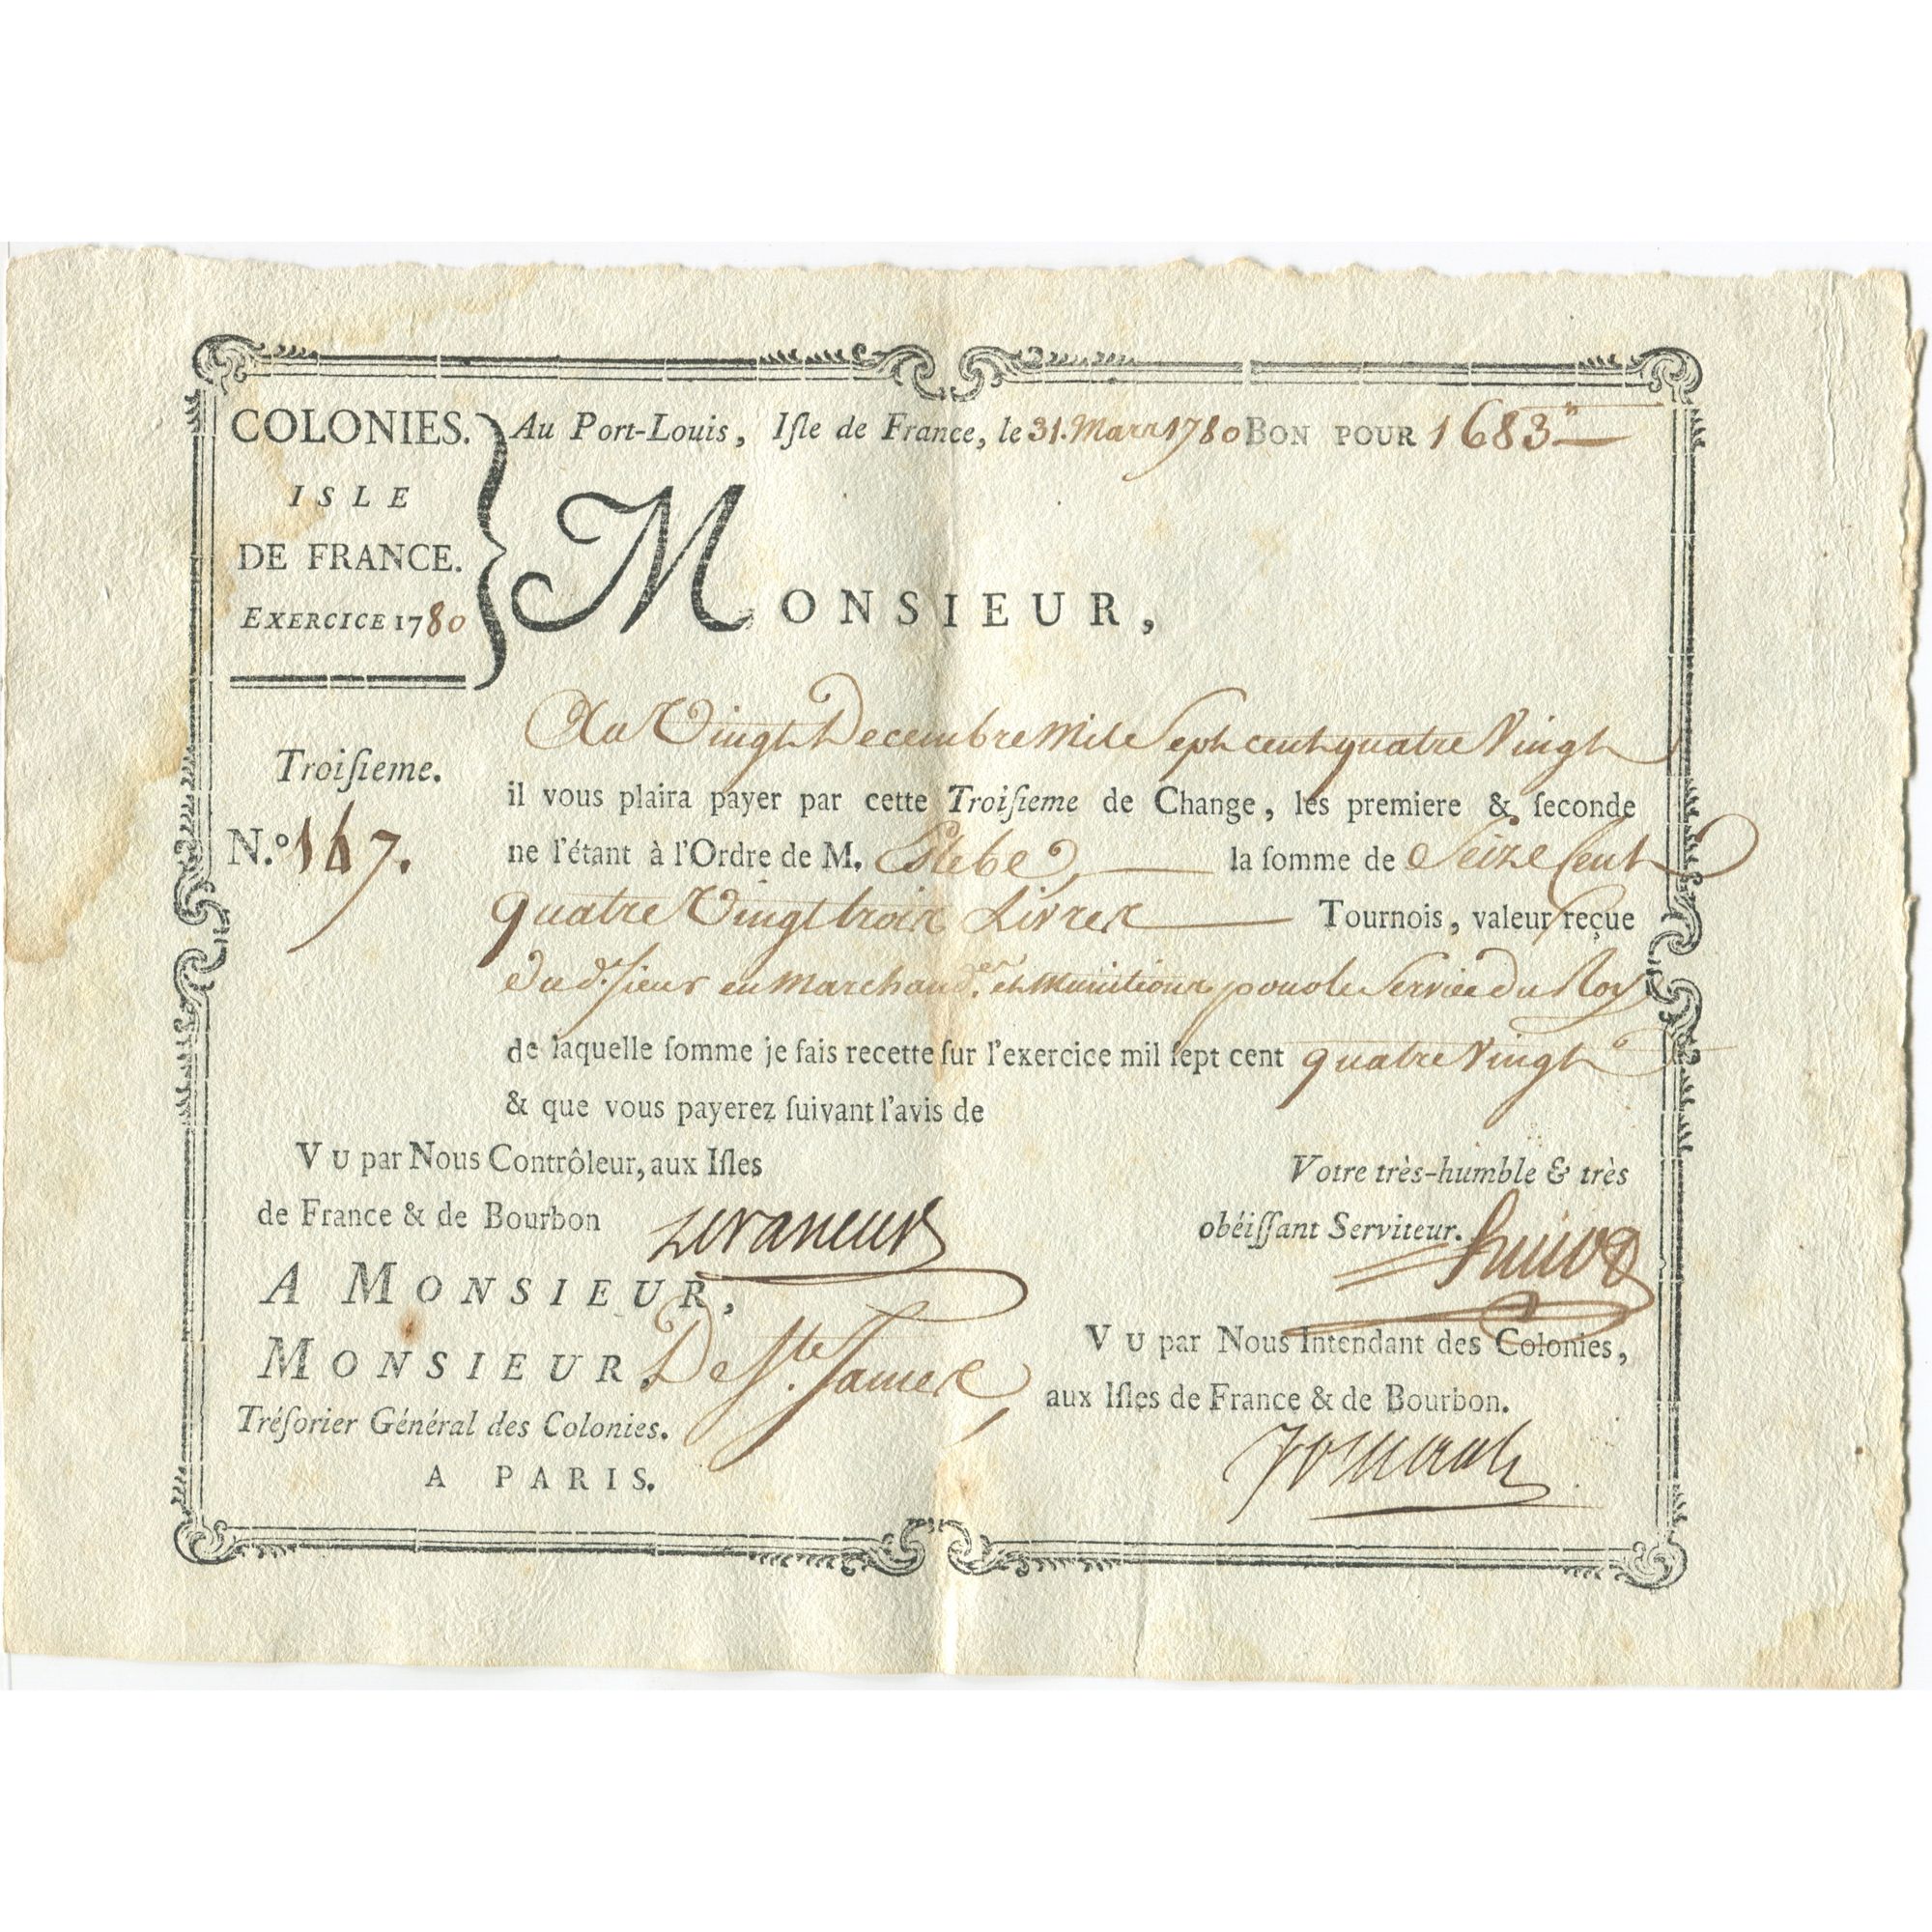 COLONIES.
ISLE
DE FRANCE.
EXERCICE 1780
Au Port-Louis, Iſle de France, le 31. Mars 1780 BON POUR 1683
MONSIEUR,
Troiſieme.
N.º 167.
Au Vingt Decembre Mile Sept cent quatre Vingt
il vous plaira payer par cette Troiſieme de Change, les premiere & ſeconde
ne l'étant à l'Ordre de M. Estebe, la ſomme de Seize Cent
quatre Vingt trois Livres Tournois, valeur reçue
du d. Sieur en Marchand.es et Munitions pour le Service du Roy
de laquelle ſomme je fais recette ſur l'exercice mil ſept cent quatre Vingt
& que vous payerez ſuivant l'avis de
VU par Nous Contrôleur, aux Iſles
de France & de Bourbon
Votre très-humble & très
obéiſſant Serviteur.
A MONSIEUR,
MONSIEUR, De Ste. James
Tréſorier Général des Colonies.
A PARIS.
VU par Nous Intendant des Colonies,
aux Iſles de France & de Bourbon.